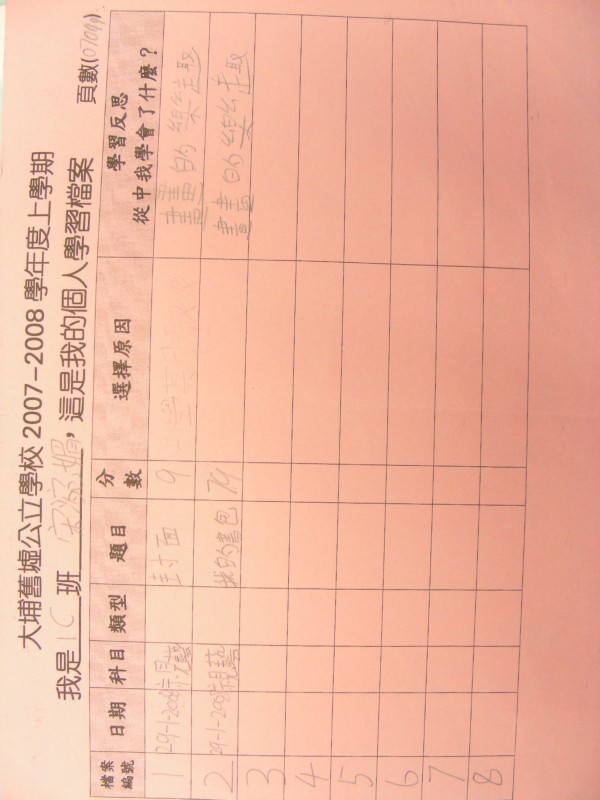 大埔舊墟公立學校 2007-2008 學年度上學期
我是 1C 班 宋淑媚，這是我的個人學習檔案 頁數(0708p)
檔案編號 日期 科目 類型 題目 分數 選擇原因 學習反思 從中我學會了什麼？
1 29-1-2008 視藝 封面 9 畫畫的樂趣
2 29-1-2008 視藝 我的書包 79 畫畫的樂趣
3
4
5
6
7
8